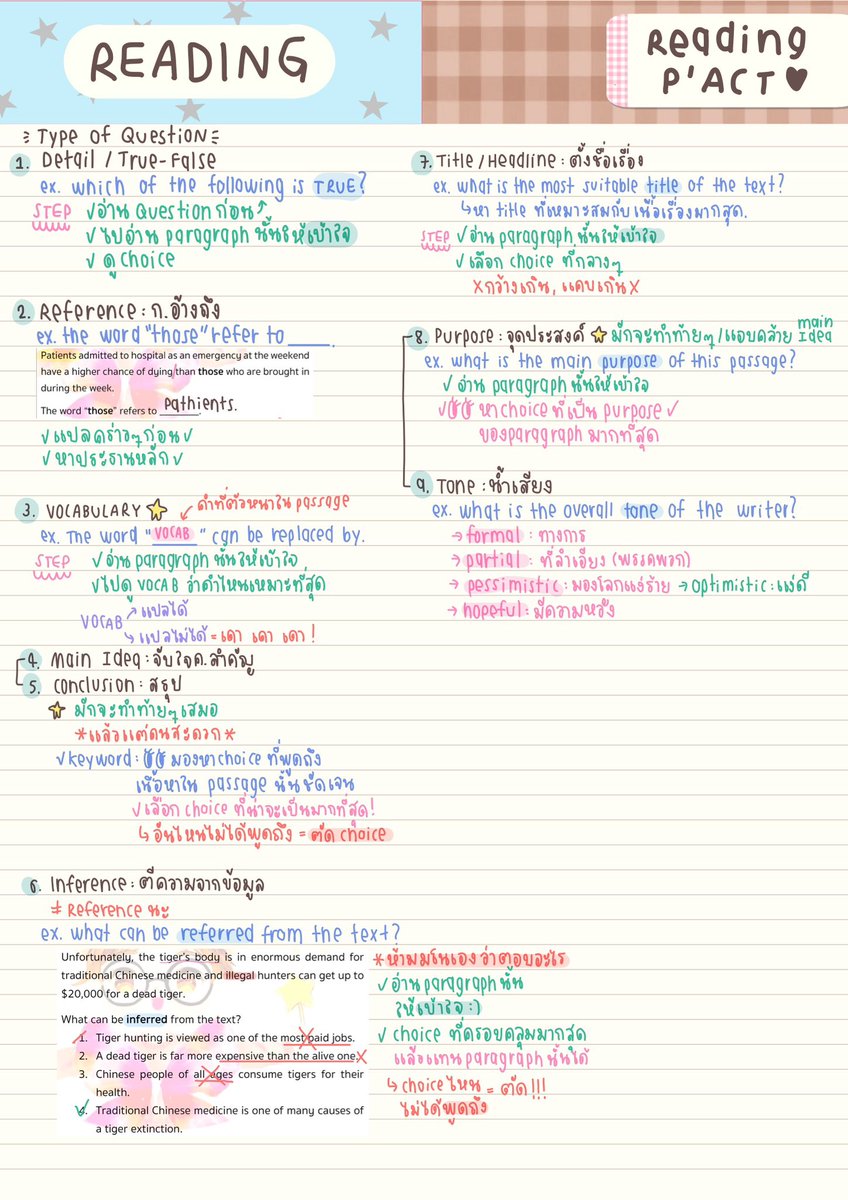 READING
Reading
P'ACT
Type of Question
1. Detail / True-False
ex. which of the following is TRUE?
STEP ✓อ่าน Question ก่อน
✓ไปอ่าน paragraph นั้นให้เข้าใจ
✓ ดู choice
2. Reference : ก.อ้างถึง
ex. the word "those" refer to ____.
Patients admitted to hospital as an emergency at the weekend
have a higher chance of dying than those who are brought in
during the week.
The word "those" refers to pathients.
✓แปลคร่าวๆก่อน✓
✓หาประธานหลัก✓
3. VOCABULARY
คำที่ตัวหนาใน passage
ex. The word "VOCAB" can be replaced by.
STEP ✓อ่าน paragraph นั้นให้เข้าใจ
✓ไปดู VOCAB ว่าคำไหนเหมาะที่สุด
VOCAB → แปลได้
→ แปลไม่ได้ = เดา เดา เดา !
4. Main Idea : จับใจค.สำคัญ
5. Conclusion : สรุป
มักจะทำท้ายๆเสมอ
*แล้วแต่คนสะดวก*
✓keyword : มองหา choice ที่พูดถึง
เนื้อหาใน passage นั้นชัดเจน
✓เลือก choice ที่น่าจะเป็นมากที่สุด!
↳ อันไหนไม่ได้พูดถึง = ตัด choice
6. Inference : ตีความจากข้อมูล
≠ Reference นะ
ex. what can be referred from the text?
Unfortunately, the tiger's body is in enormous demand for
traditional Chinese medicine and illegal hunters can get up to
$20,000 for a dead tiger.
What can be inferred from the text?
1. Tiger hunting is viewed as one of the most paid jobs.
2. A dead tiger is far more expensive than the alive one.
3. Chinese people of all ages consume tigers for their
health.
4. Traditional Chinese medicine is one of many causes of
a tiger extinction.
*ห้ามมโนเองว่าตอบอะไร
✓อ่าน paragraph นั้น
ให้เข้าใจ :)
✓ choice ที่ครอบคลุมมากสุด
แล้วแทน paragraph นั้นได้
↳ choice ไหน = ตัด!!!
ไม่ได้พูดถึง
7. Title / Headline : ตั้งชื่อเรื่อง
ex. what is the most suitable title of the text?
↳ หา title ที่เหมาะสมกับเนื้อเรื่องมากสุด.
STEP ✓อ่าน paragraph นั้นให้เข้าใจ
✓เลือก choice ที่กลางๆ
Xกว้างเกิน, แคบเกินX
8. Purpose : จุดประสงค์ มักจะทำท้ายๆ/แอบคล้าย main Idea
ex. what is the main purpose of this passage?
✓ อ่าน paragraph นั้นให้เข้าใจ
✓ หา choice ที่เป็น purpose ✓
ของ paragraph มากที่สุด
9. Tone : น้ำเสียง
ex. what is the overall tone of the writer?
→ formal : ทางการ
→ partial : ที่ลำเอียง (พรรคพวก)
→ pessimistic : มองโลกแง่ร้าย → optimistic : แง่ดี
→ hopeful : มีความหวัง